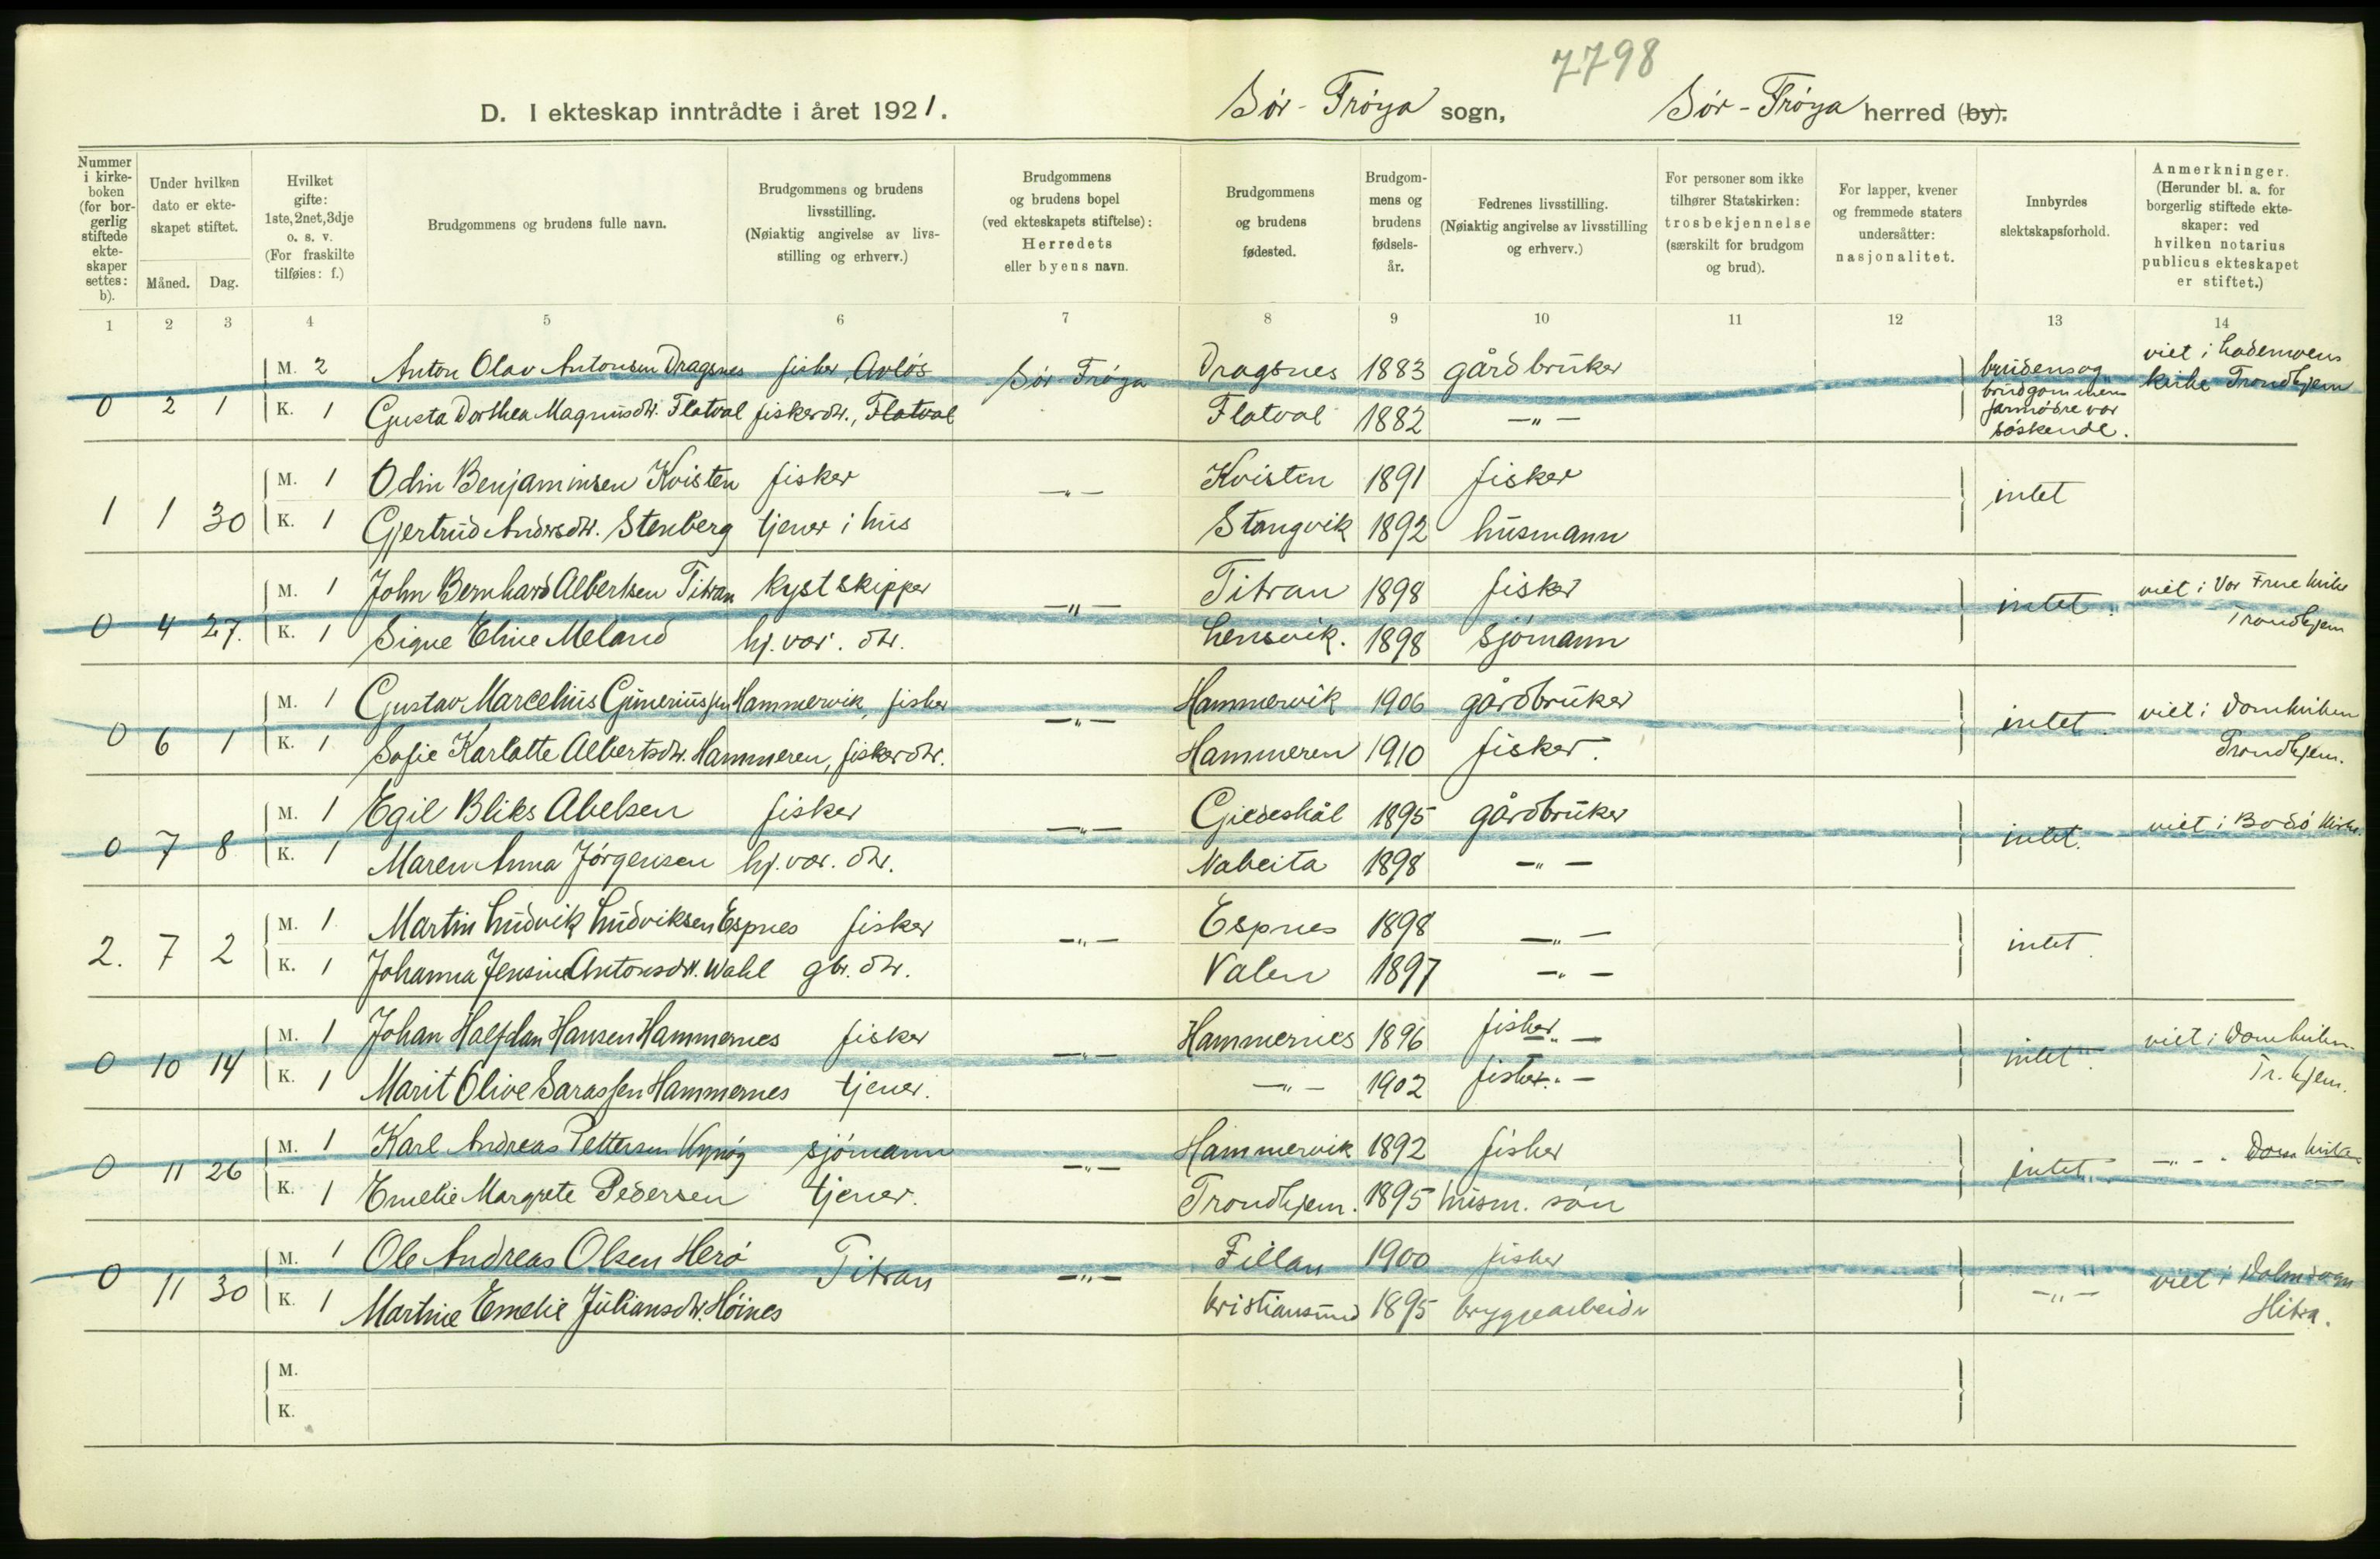 7798
D. I ekteskap inntrådte i året 1921. Sör-Fröya sogn, Sör-Fröya herred (by).
Nummer i kirkeboken (for borgerlig stiftede ekteskaper settes: b).
Under hvilken dato er ekteskapet stiftet.
Måned. Dag.
Hvilket gifte: 1ste, 2net, 3dje o. s. v. (For fraskilte tilføies: f.)
Brudgommens og brudens fulle navn.
Brudgommens og brudens livsstilling. (Nøiaktig angivelse av livsstilling og erhverv.)
Brudgommens og brudens bopel (ved ekteskapets stiftelse): Herredets eller byens navn.
Brudgommens og brudens fødested.
Brudgommens og brudens fødselsår.
Fedrenes livsstilling. (Nøiaktig angivelse av livsstilling og erhverv.)
For personer som ikke tilhører Statskirken: trosbekjennelse (særskilt for brudgom og brud).
For lapper, kvener og fremmede staters undersåtter: nasjonalitet.
Innbyrdes slektskapsforhold.
Anmerkninger. (Herunder bl. a. for borgerlig stiftede ekteskaper: ved hvilken notarius publicus ekteskapet er stiftet.)
1 2 3 4 5 6 7 8 9 10 11 12 13 14
M. 2 Anton Olav Antonsen Dragsnes fisker, Avlös Sör Fröya Dragsnes 1883 gårdbruker brudens og brudgommens farmödre var söskende. viet i Lademoens kirke Trondhjem
0 2 1 K. 1 Gusta Dorthea Magnusdtr. Flatval fiskerdtr., Flatval Flatval 1882 —"—
M. 1 Odin Benjaminsen Kvisten fisker —"— Kvisten 1891 fisker intet
1 1 30 K. 1 Gjertrud Andersdtr. Stenberg tjener i hus Stangvik 1892 husmann
M. 1 John Bernhard Albertsen Titran kystskipper —"— Titran 1898 fisker intet. viet i Vor Frue kirke
0 4 27. K. 1 Signe Eline Meland hj. vær. dtr. Lensvik. 1898 sjömann Trondhjem
M. 1 Gustav Marcelius Guneriussen Hammervik, fisker —"— Hammervik 1906 gårdbruker intet. viet i Domkirken
0 6 1 K. 1 Sofie Karlotte Albertsdtr. Hammeren, fiskerdtr. Hammeren 1910 fisker. Trondhjem.
M. 1 Egil Bliks Abelsen fisker —"— Gjedeskål 1895 gårdbruker intet. viet i Bodö kirke.
0 7 8 K. 1 Maren Anna Jörgensen hj. vær. dtr. Nabeita 1898 —"—
M. 1 Martin Ludvik Ludviksen Espnes fisker —"— Espnes 1898 —"— intet.
2. 7 2 K. 1 Johanna Jensine Antonsdtr. Wahl gbr. dtr. Valen 1897 —"—
M. 1 Johan Halfdan Hansen Hammernes fisker —"— Hammernes 1896 fisker —"— intet. viet i Domkirken
0 10 14 K. 1 Marit Olive Sarassen Hammernes tjener. —"— 1902 fisker —"— Tr. hjem.
M. 1 Karl Andreas Pettersen sjömann —"— Hammervik 1892 fisker intet. —"— Domkirken
0 11 26 K. 1 Emelie Margrete Pedersen tjener. Trondhjem. 1895 husm. sön —
M. 1 Ole Andreas Olsen Herö Titran —"— Fillan 1900 fisker —"— viet i Dolm sogn
0 11 30 K. 1 Martine Emelie Juliansdtr. Höines Kristiansund 1895 bryggearbeider Hitra.
M.
K.